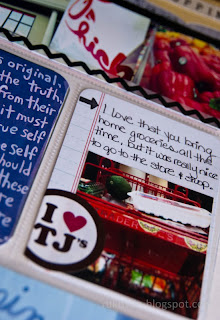 Chick
s original
the truth,
from their
it must
rue self
e self
should
these
re
I love that you bring
home groceries all the
time, but it was really nice
to go to the store & shop.
I ♥
TJ's
blogspot.com